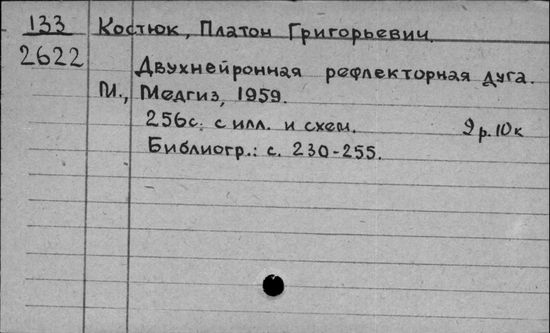 133 Костюк, Платон Григорьевич.
2622
Двухнейронная рефлекторная дуга.
М., Медгиз, 1959.
256с. с илл. и схем. 9р.10к
Библиогр.: с. 230-255.